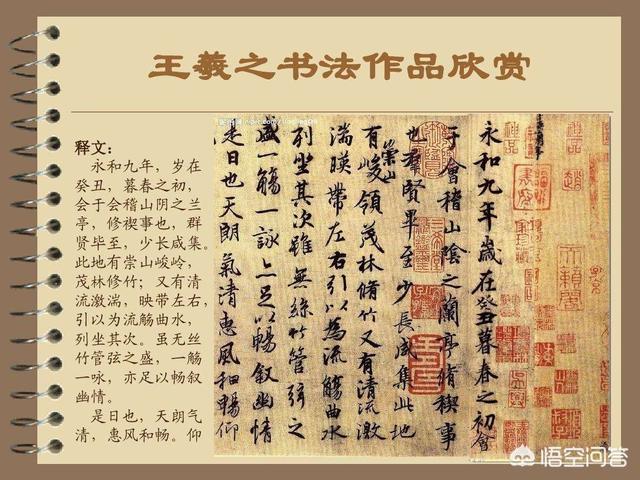 王羲之书法作品欣赏
释文:
永和九年，岁在
癸丑，暮春之初，
会于会稽山阴之兰
亭，修禊事也，群
贤毕至，少长咸集。
此地有崇山峻岭，
茂林修竹；又有清
流激湍，映带左右，
引以为流觞曲水，
列坐其次。虽无丝
竹管弦之盛，一觞
一咏，亦足以畅叙
幽情。
是日也，天朗气
清，惠风和畅。仰
永和九年歲在癸丑暮春之初會
于會稽山陰之蘭亭脩禊事
也羣賢畢至少長咸集此地
有崇山峻領茂林脩竹又有清流激
湍暎帶左右引以為流觴曲水
列坐其次雖無絲竹管弦之
盛一觴一詠亦足以暢叙幽情
是日也天朗氣清惠風和暢仰
悟空问答